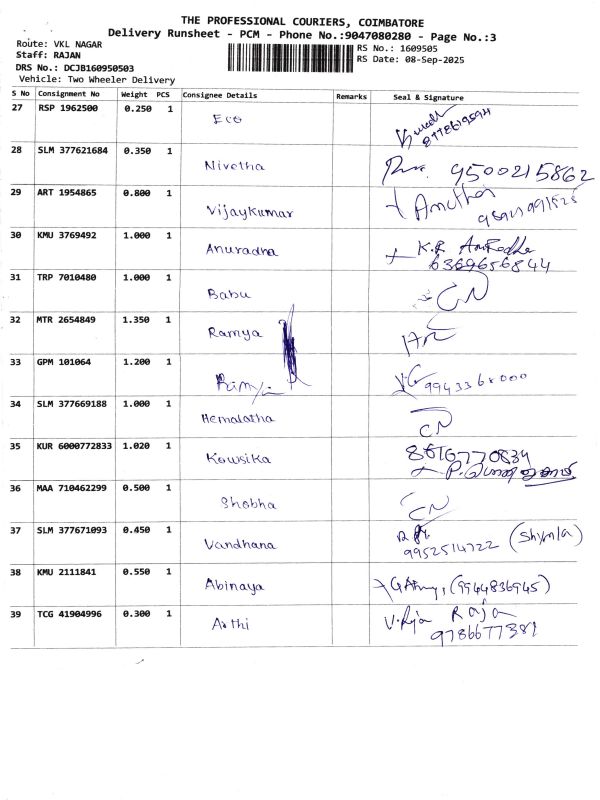 THE PROFESSIONAL COURIERS, COIMBATORE
Delivery Runsheet - PCM - Phone No.:9047080280 - Page No.:3
Route: VKL NAGAR
RS No.: 1609505
Staff: RAJAN
RS Date: 08-Sep-2025
DRS No.: DCJB160950503
Vehicle: Two Wheeler Delivery
S No Consignment No Weight PCS Consignee Details Remarks Seal & Signature
27 RSP 1962500 0.250 1
28 SLM 377621684 0.350 1 Nivetha 9500215862
29 ART 1954865 0.800 1 Vijaykumar Anutha
30 KMU 3769492 1.000 1 Anuradha K.R
6369656844
31 TRP 7010480 1.000 1 Babu CN
32 MTR 2654849 1.350 1 Ramya
33 GPM 101064 1.200 1
34 SLM 377669188 1.000 1 Hemalatha CN
35 KUR 6000772833 1.020 1 Kowsika 8616770834
36 MAA 710462299 0.500 1 Shobha CN
37 SLM 377671093 0.450 1 Vandhana
9952514722 (Shymla)
38 KMU 2111841 0.550 1 Abinaya (9944836945)
39 TCG 41904996 0.300 1 Arthi V. Raja Raja
9786677381